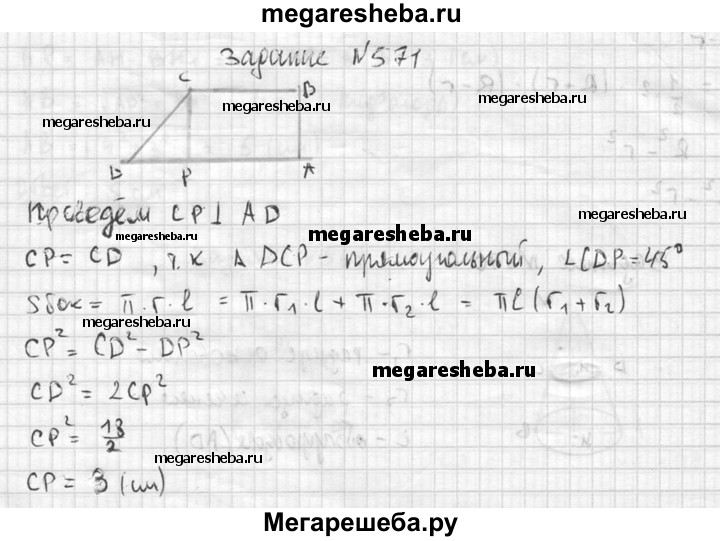 megaresheba.ru
Задание №571
C B
megaresheba.ru megaresheba.ru megaresheba.ru
D P A
Проведём CP ⊥ AD
megaresheba.ru megaresheba.ru
CP = CD , т.к Δ DCP - прямоугольный, ∠CDP = 45°
Sбок = π · r · l = π · r₁ · l + π · r₂ · l = πl (r₁ + r₂)
megaresheba.ru
CP² = CD² - DP²
megaresheba.ru
CD² = 2CP²
CP² = 18/2
megaresheba.ru
CP = 3 (см)
Мегарешеба.ру